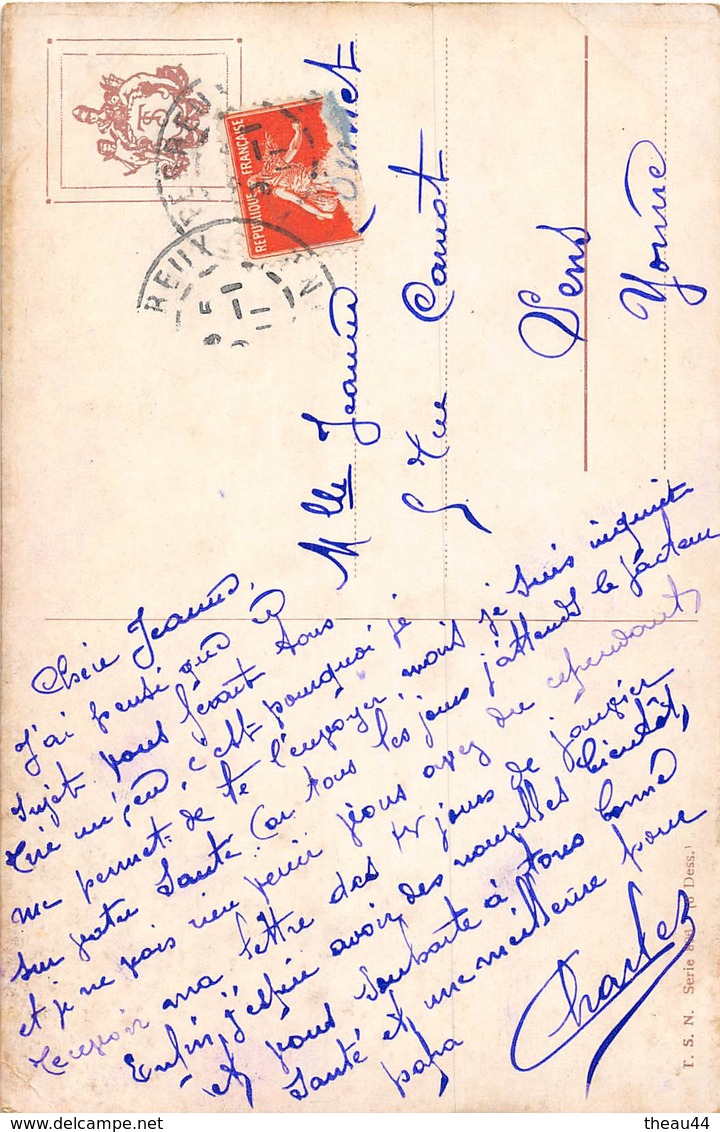 Mlle Jeanne
5 rue Carnot
Sens
Yonne
REPUBLIQUE FRANÇAISE
REUX
Chère Jeanne,
J'ai pensé que ce
sujet vous ferait
c'est pourquoi je
me permet de te l'envoyer, mais je suis inquiet
sur votre santé car tous les jours j'attends le facteur
et je ne vois rien venir vous avez du cependant,
recevoir ma lettre des jours de janvier
Enfin, j'espère avoir des nouvelles bientôt,
et vous souhaite à tous bonne
santé et une meilleure pour
papa
Charles
T. S. N. Serie (6 Dess.)
theau44